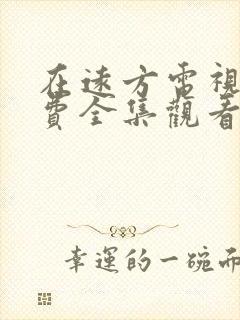 在遠方電視
費全集觀看
幸運的一碗面